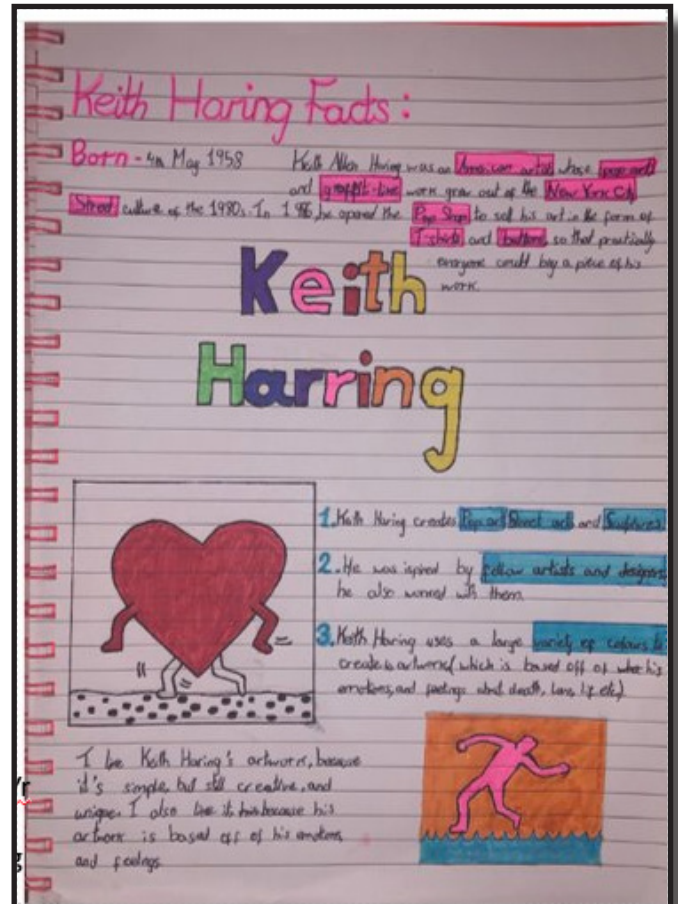 Keith Haring Facts:
Born - 4th May 1958
Keith Allen Haring was an American artist whose pop art
and graffiti-like work grew out of the New York City
Street culture of the 1980s. In 1986, he opened the Pop Shop to sell his art in the form of
T-shirts and buttons, so that practically
everyone could buy a piece of his
work.
Keith
Harring
1. Keith Haring creates Pop art Street art and Sculptures
2. He was ispired by fellow artists and designers
he also worked with them.
3. Keith Haring uses a large variety of colours to
create artwork (which is based off of his
emotions, and feelings about death, love, life etc)
I like Keith Haring's artwork, because
it's simple, but still creative, and
unique. I also like it because his
artwork is based off of his emotions
and feelings.